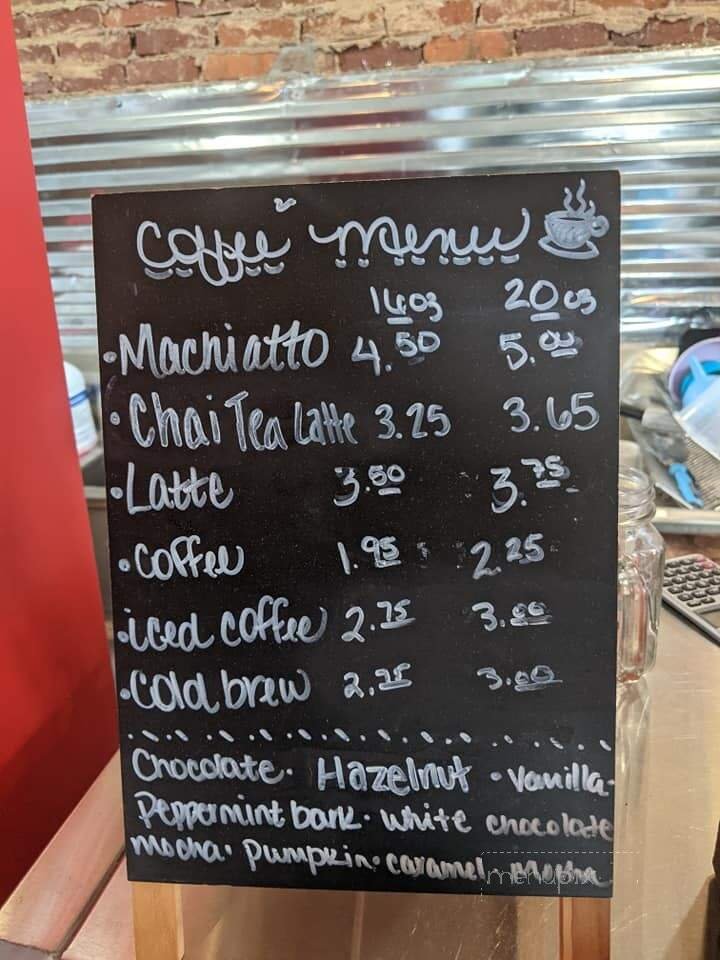 Coffee Menu
16oz 20oz
•Machiatto 4.50 5.00
•Chai Tea Latte 3.25 3.65
•Latte 3.50 3.75
•Coffee 1.95 2.25
•iced coffee 2.75 3.00
•Cold brew 2.75 3.00
Chocolate• Hazelnut •vanilla•
Peppermint bark• white chocolate
mocha• Pumpkin•caramel• Mocha
menupix